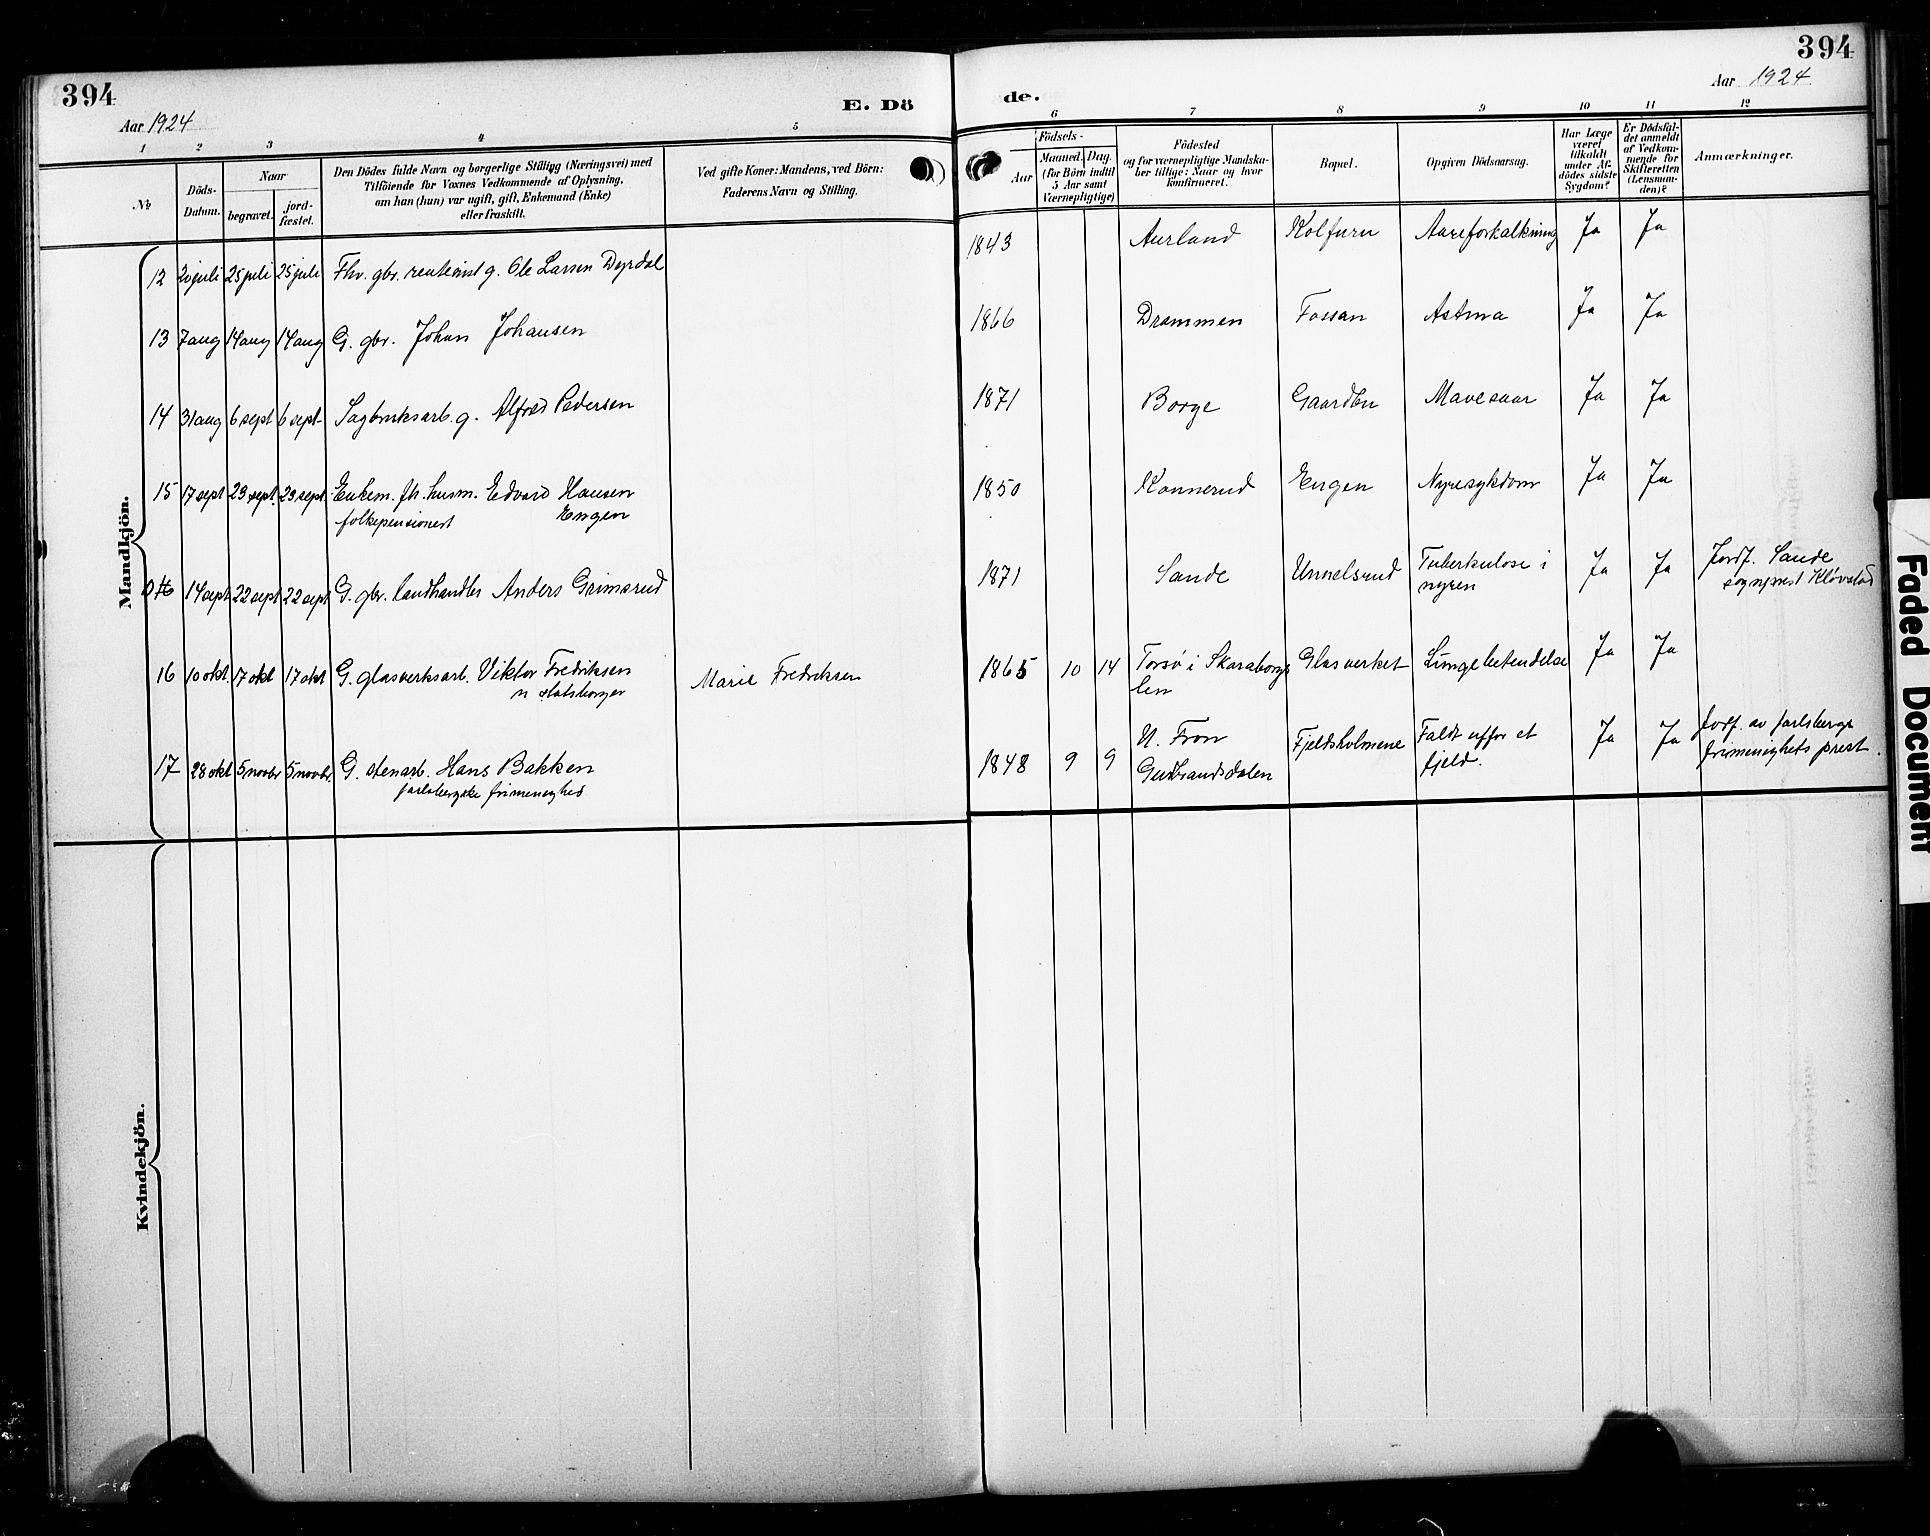 394
Aar 1924
E. Dö
1 2 3 4 5
No
Döds-
Datum.
Naar
begravet.
jord-
fæstet.
Den Dödes fulde Navn og borgerlige Stilligg (Næringsvei) med
Tilföiende for Voxnes Vedkommende af Oplysning,
om han (hun) var ugift, gift, Enkemand (Enke)
eller fraskilt.
Ved gifte Koner: Mandens, ved Börn:
Faderens Navn og Stilling.
Mandkjön.
12 20 juli 25 juli 25 juli Fhv. gbr. rentenist g. Ole Larsen Dyrdal
13 7 aug 14 aug 14 aug G. gbr. Johan Johansen
14 31 aug 6 sept 6 sept Sagbruksarb. g. Alfred Pedersen
15 17 sept 23 sept. 23 sept. Enkem. fh. husm. Edvard Hansen
folkepensionert Engen
14 sept 22 sept 22 sept G. gbr. landhandler Anders Grimsrud
16 10 okt. 17 okt 17 okt G. glasverksarb. Viktor Fredriksen Marie Fredriksen
n statsborger
17 28 okt 5 novbr 5 novbr. G. stenarb. Hans Bakken
jarlsbergske frimenighed
Kvindekjön.
394
Aar 1924
de.
6 7 8 9 10 11 12
Födsels-
Aar
Maaned. Dag.
(for Börn indtil
5 Aar samt
Værnepligtige)
Födested
og for værnepligtige Mandska-
ber tillige: Naar og hvor
konfirmeret.
Bopæl.
Opgiven Dödsaarsag.
Har Læge
været
tilkaldt
under Af-
dödes sidste
Sygdom?
Er Dödsfal-
det anmeldt
af Vedkom-
mende for
Skifteretten
(Lensman-
den)?
Anmærkninger.
1843 Aurland Kolfuru Aareforkalkning Ja Ja
1866 Drammen Fossan Astma Ja Ja
1871 Borge Gaarden Mavesaar Ja Ja
1850 Konnerud Engen Nyresykdom Ja Ja
1871 Sande Unnelsrud Tuberkulose i Ja Ja Jordf. Sande
nyren sognprest Kløvstad
1865 10 14 Torsø i Skaraborgs Glasverket Lungebetendelse Ja Ja
len
1848 9 9 N. Fron Fjeldsholmene Faldt utfor et Ja Ja Jordf. av Jarlsbergs
Gudbrandsdalen fjeld. frimenighets prest.
Faded Document